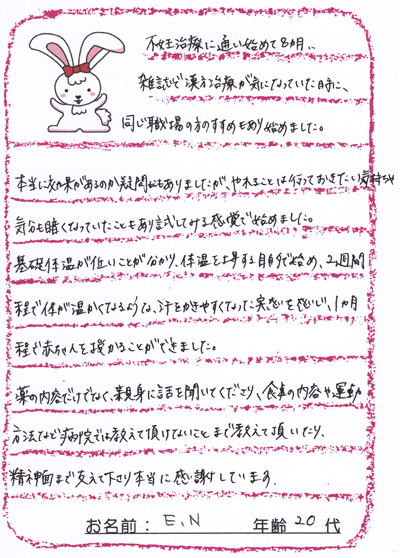 不妊治療に通い始めて8ヵ月、、
雑誌などで漢方治療が気になっていた時に、
同じ職場の方のすすめもあり始めました。
本当に効果があるのか疑問にもありましたが、やれることは行っておきたい
気分も暗くなっていたこともあり試してみる感覚で始めました。
基礎体温が低いことが分かり、体温を上昇する目的で始め、2週間
程で体が温かくなるような、汗をかきやすくなった実感を感じ、1ヵ月
程で赤ちゃんを授かることができました。
薬の内容だけでなく、親身に話を聞いてくださり、食事の内容や運動
方法など病院では教えて頂けないことまで教えて頂いたり、
精神面まで支えて下さり本当に感謝しています。
お名前：E、N 年齢 20 代